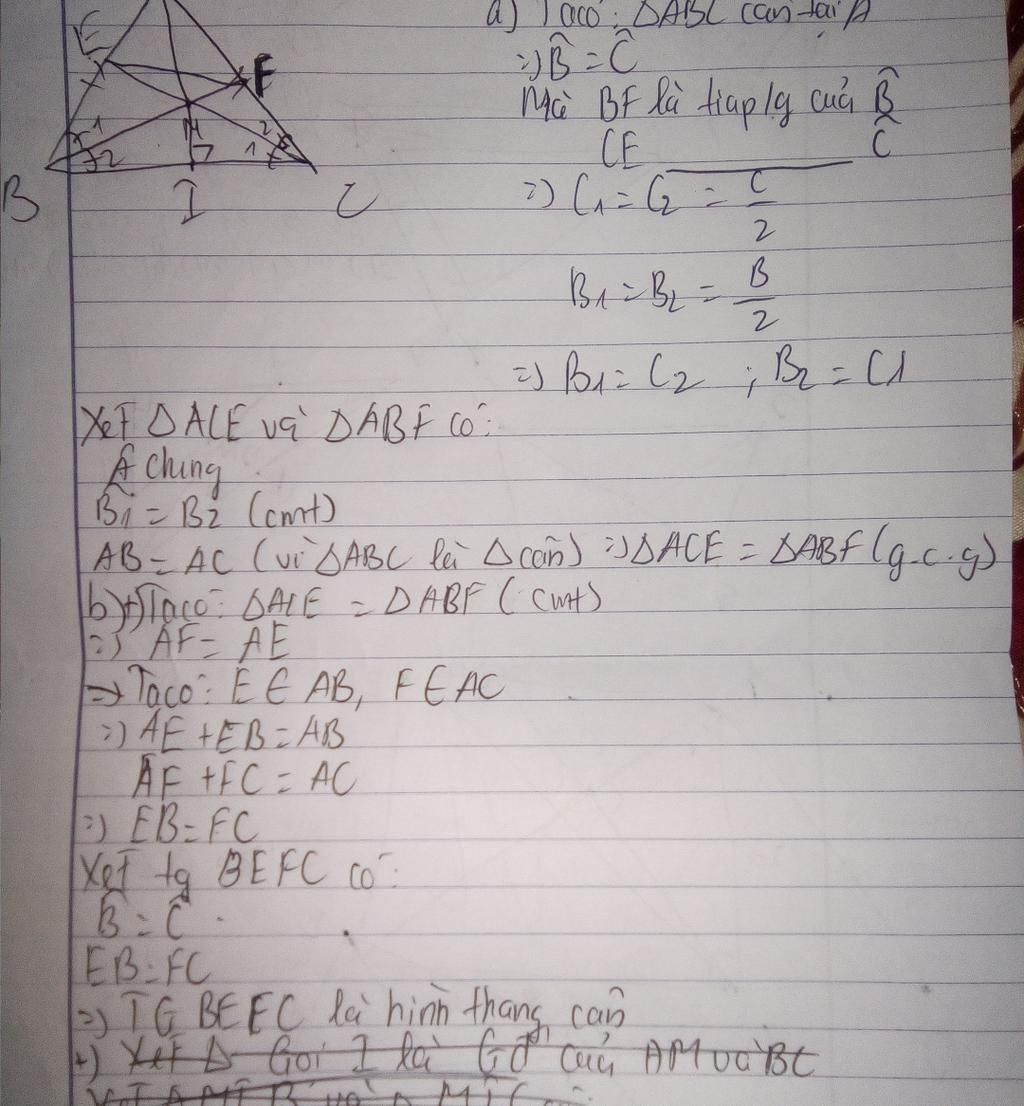 a) Taco: ΔABC cân tại A
E
=> B̂ = Ĉ
F
Mà BF là tiap/g cuả B̂
CE ———— Ĉ
1 M 2
2 1
B I C
=> C1 = C2 = C/2
B1 = B2 = B/2
=> B1 = C2 ; B2 = C1
Xet ΔACE và ΔABF có:
Â chung
B̂1 = B2 (cmt)
AB = AC (vì ΔABC là Δ cân) => ΔACE = ΔABF (g.c.g)
b) +) Taco: ΔACE = ΔABF (cmt)
=> AF = AE
=> Taco: E ∈ AB, F ∈ AC
=> AE + EB = AB
AF + FC = AC
=> EB = FC
Xet tg BEFC có:
B̂ = Ĉ
EB = FC
=> TG BEFC là hình thang cân
+) Xet Δ Goi I là Gđ cuả AM và BC